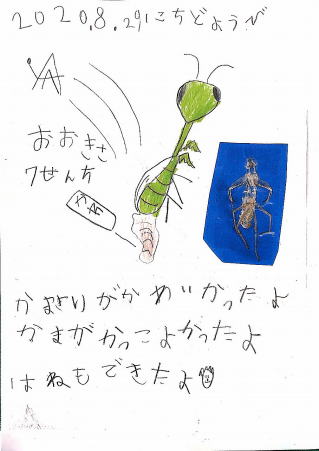 2020.8.29にちどようび
おおきさ
7せんち
かまきりがかめいかったよ
かまがかっこよかったよ
はねもできたよ